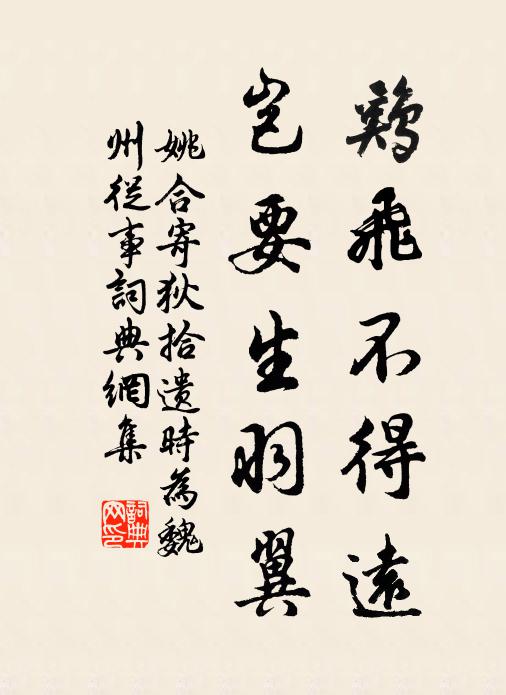 鷄飛不得遠
豈要生羽翼
姚合寄狄拾遺時為魏
州從事詞典網集
詞典网印